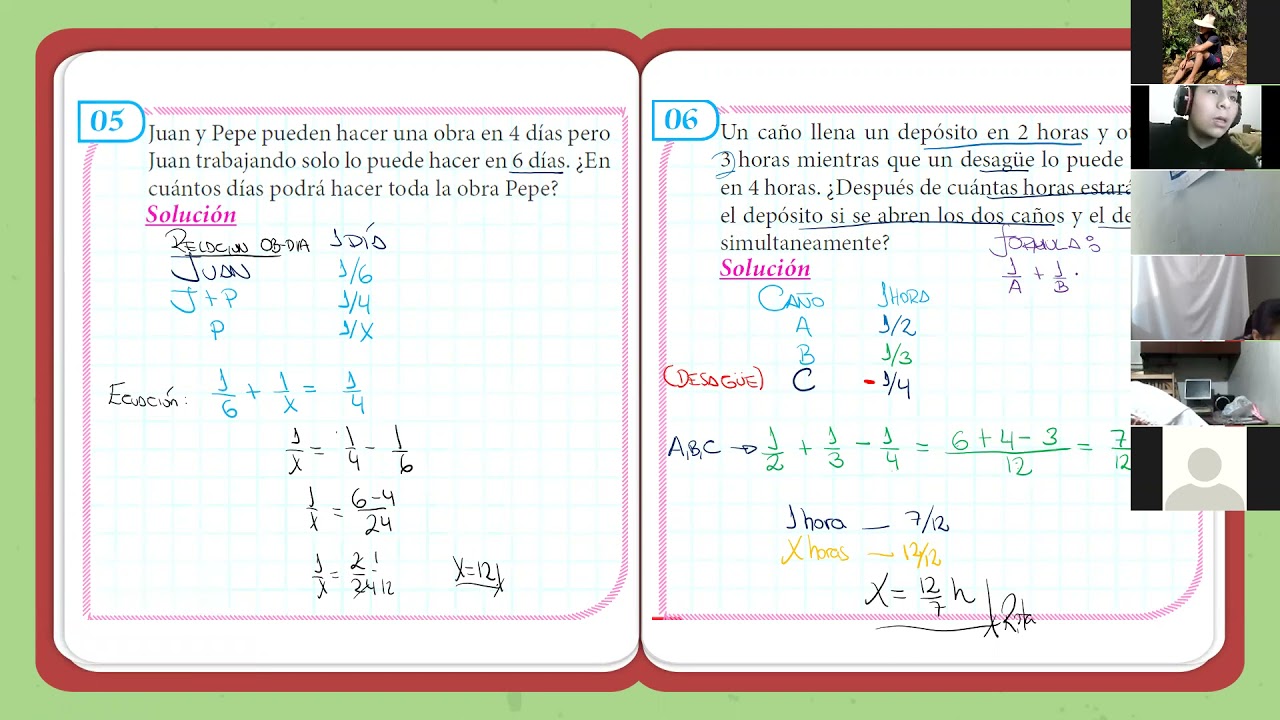 05
Juan y Pepe pueden hacer una obra en 4 días pero
Juan trabajando solo lo puede hacer en 6 días. ¿En
cuántos días podrá hacer toda la obra Pepe?
Solución
RELACION OB-DIA 1DÍA
JUAN 1/6
J+P 1/4
P 1/X
ECUACIÓN: 1/6 + 1/x = 1/4
1/x = 1/4 - 1/6
1/x = 6-4/24
1/x = 2/24 1/12 X=12
06
Un caño llena un depósito en 2 horas y
3 horas mientras que un desagüe lo puede
en 4 horas. ¿Después de cuántas horas estará
el depósito si se abren los dos caños y el
simultaneamente?
Solución
FORMULA:
1/A + 1/B
CAÑO 1HORA
A 1/2
B 1/3
(DESAGÜE) C -1/4
A,B,C → 1/2 + 1/3 - 1/4 = 6+4-3/12 = 7/12
1hora — 7/12
X horas — 12/12
X = 12/7 h Rpta